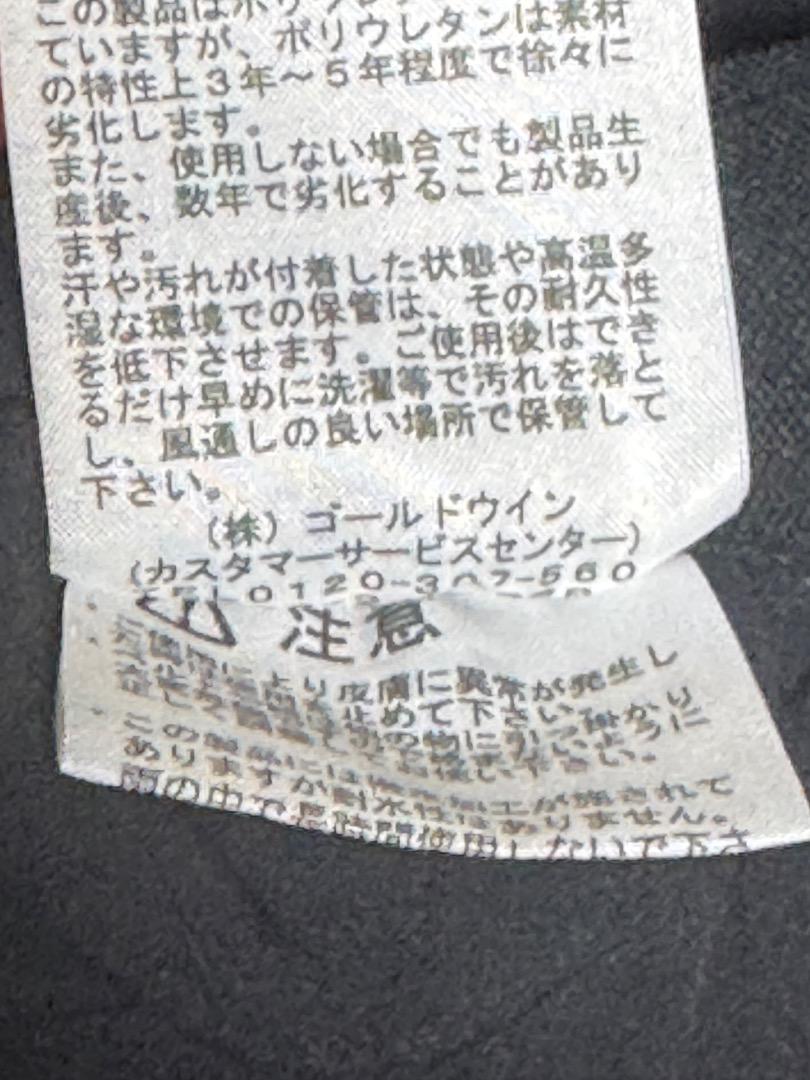 この製品はポリウレタン
ていますが、ポリウレタンは素材
の特性上３年～５年程度で徐々に
劣化します。
また、使用しない場合でも製品生
産後、数年で劣化することがあり
ます。
汗や汚れが付着した状態や高温多
湿な環境での保管は、その耐久性
を低下させます。ご使用後はでき
るだけ早めに洗濯等で汚れを落と
し、風通しの良い場所で保管して
下さい。
（株）ゴールドウイン
（カスタマーサービスセンター）
0120-307-560
注意
により皮膚に異常が発生し
止めて下さい。
の物に引っ掛かり
ように
下さい。
この
加工が施されて
ありますが耐水性はありません。
雨の中で長時間使用しないで下さ